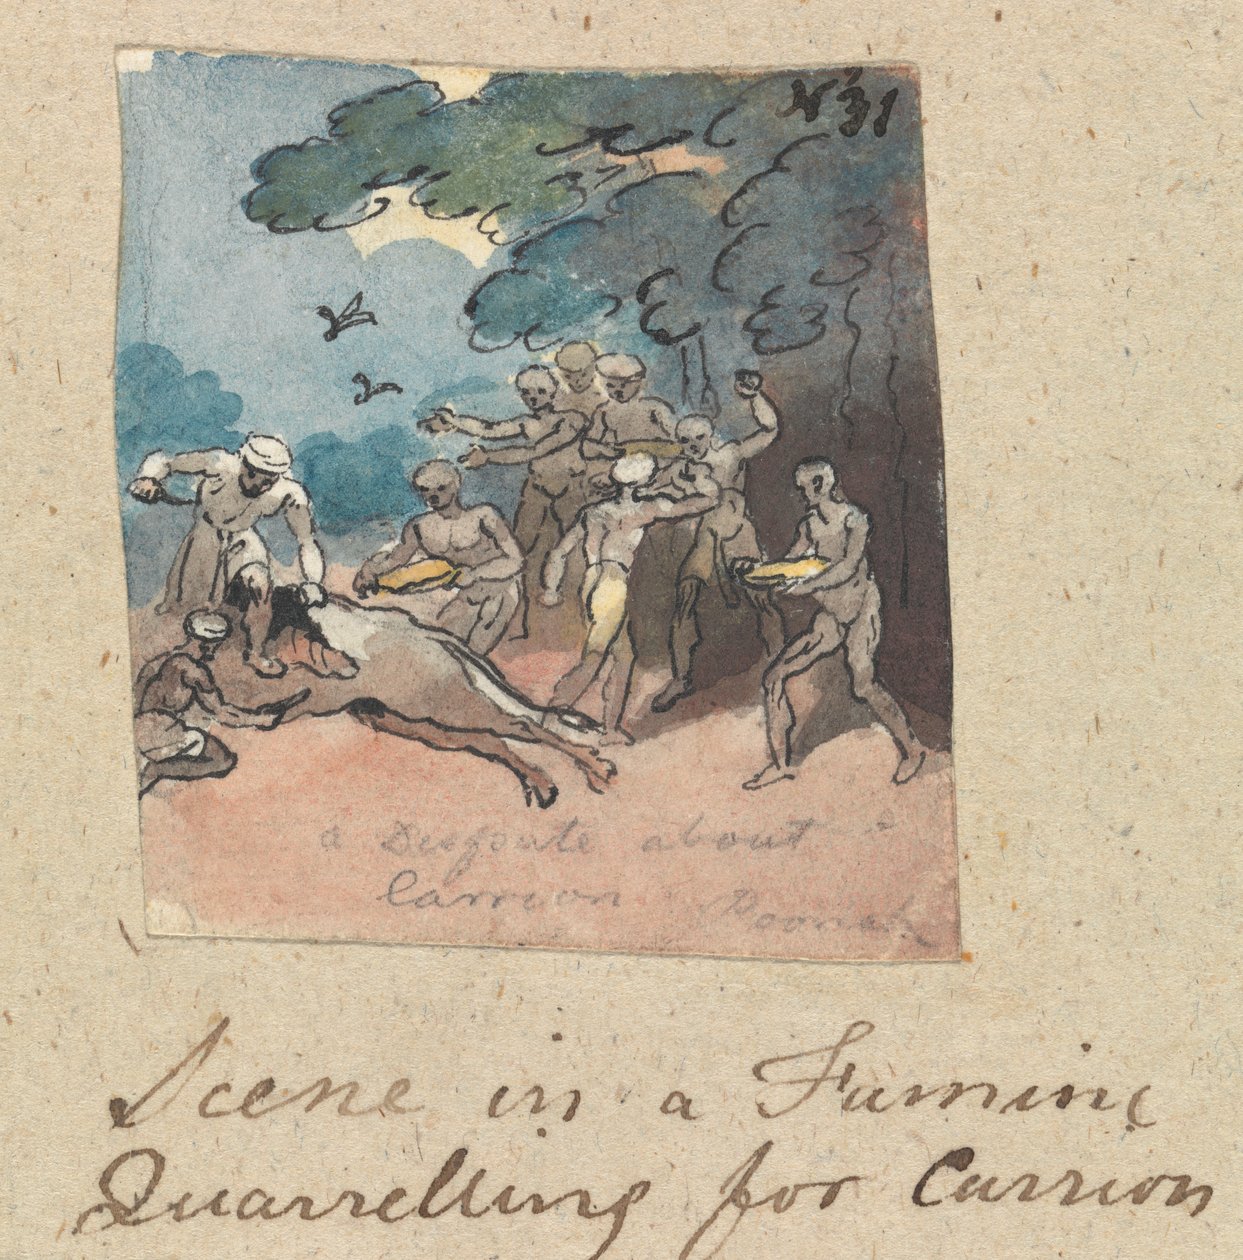 No 31
a Dispute about a
Carrion Poonah
Scene in a Famine
Quarrelling for Carrion